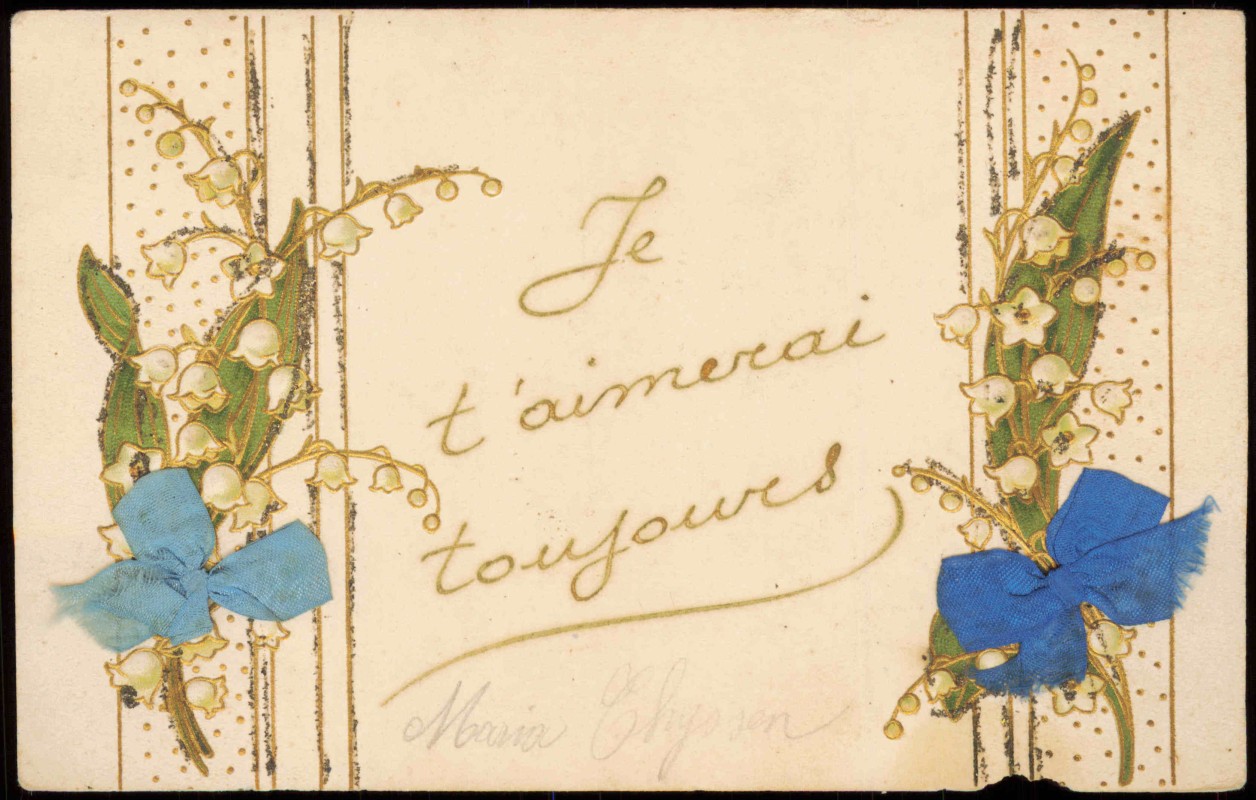 Je
t'aimerai
toujours
Maria Thyssen